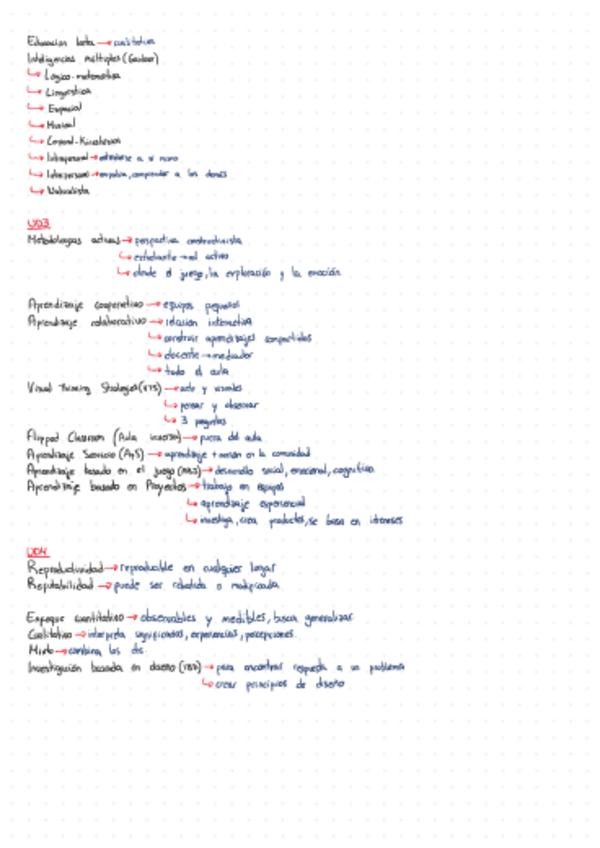 Educación lenta → cualitativa
Inteligencias múltiples (Gardner)
↳ Lógico-matemática
↳ Lingüística
↳ Espacial
↳ Musical
↳ Corporal-Kinestésica
↳ Intrapersonal → entenderse a si mismo
↳ Interpersonal → empatía, comprender a los demás
↳ Naturalista
UD3
Metodologías activas → perspectiva constructivista
↳ estudiante → rol activo
↳ desde el juego, la exploración y la emoción
Aprendizaje cooperativo → equipos pequeños
Aprendizaje colaborativo → relación interactiva
↳ construir aprendizajes compartidos
↳ docente → mediador
↳ todo el aula
Visual Thinking Strategies (VTS) → arte y visuales
↳ pensar y observar
↳ 3 preguntas
Flipped Classroom (Aula inversa) → fuera del aula
Aprendizaje Servicio (ApS) → aprendizaje + acción en la comunidad
Aprendizaje basado en el juego → desarrollo social, emocional, cognitivo
Aprendizaje basado en Proyectos → trabajo en equipos
↳ aprendizaje experiencial
↳ investiga, crea productos, se basa en intereses
UD4
Reproductividad → reproducible en cualquier lugar
→ puede ser rebatida o
Enfoque cuantitativo → observables y medibles, busca generalizar
Cualitativo → interpreta significados, experiencias, percepciones
Mixto → combina los dos
Investigación basada en diseño (IBD) → para encontrar respuesta a un problema
↳ crear principios de diseño